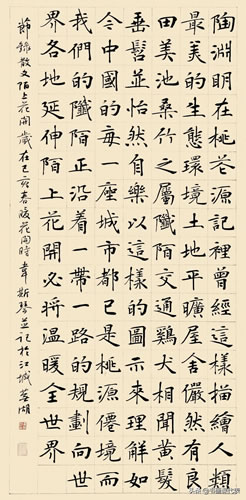 陶淵明在桃花源記裡這樣描繪人類
最美的生態環境土地平曠屋舍儼然有良
田美池桑竹之屬纖陌交通雞犬相聞黃髮
垂髫並怡然自樂以這樣的圖示來理解如
今中國的每一座城市都已是桃源僊境而
我們的纖陌正沿着一帶一路的規劃向世
界各地延伸陌上花開必將溫暖全世界
節錄散文陌上花開歲在己亥春暖花開時韋斯琴並記於江城蕪湖